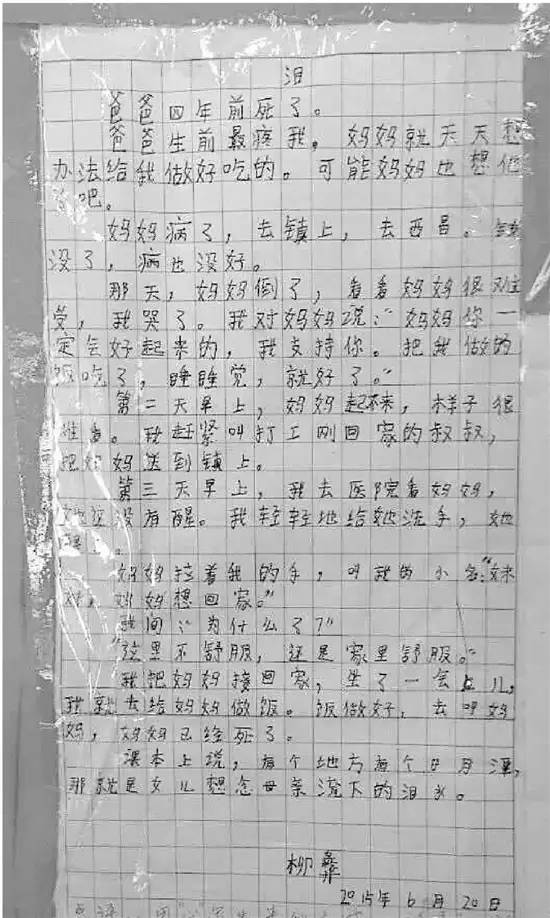 泪
爸爸四年前死了。
爸爸生前最疼我。妈妈就天天想
办法给我做好吃的。可能妈妈也想他
了吧。
妈妈病了，去镇上，去西昌。钱
没了，病也没好。
那天，妈妈倒了，看看妈妈很难
受，我哭了。我对妈妈说：“妈妈你一
定会好起来的，我支持你。把我做的
饭吃了，睡睡觉，就好了。”
第二天早上，妈妈起不来，样子很
难看。我赶紧叫打工刚回家的叔叔，
把妈妈送到镇上。
第三天早上，我去医院看妈妈，
她还没有醒。我轻轻地给她洗手，她
醒了。
妈妈拉着我的手，叫我的小名：“妹
妹，妈妈想回家。”
我问：“为什么了？”
“这里不舒服，还是家里舒服。”
我把妈妈接回家，坐了一会儿，
我就去给妈妈做饭。饭做好，去叫妈
妈，妈妈已经死了。
课本上说，有个地方有个日月潭，
那就是女儿想念母亲流下的泪水。
柳彝
2015年6月20日